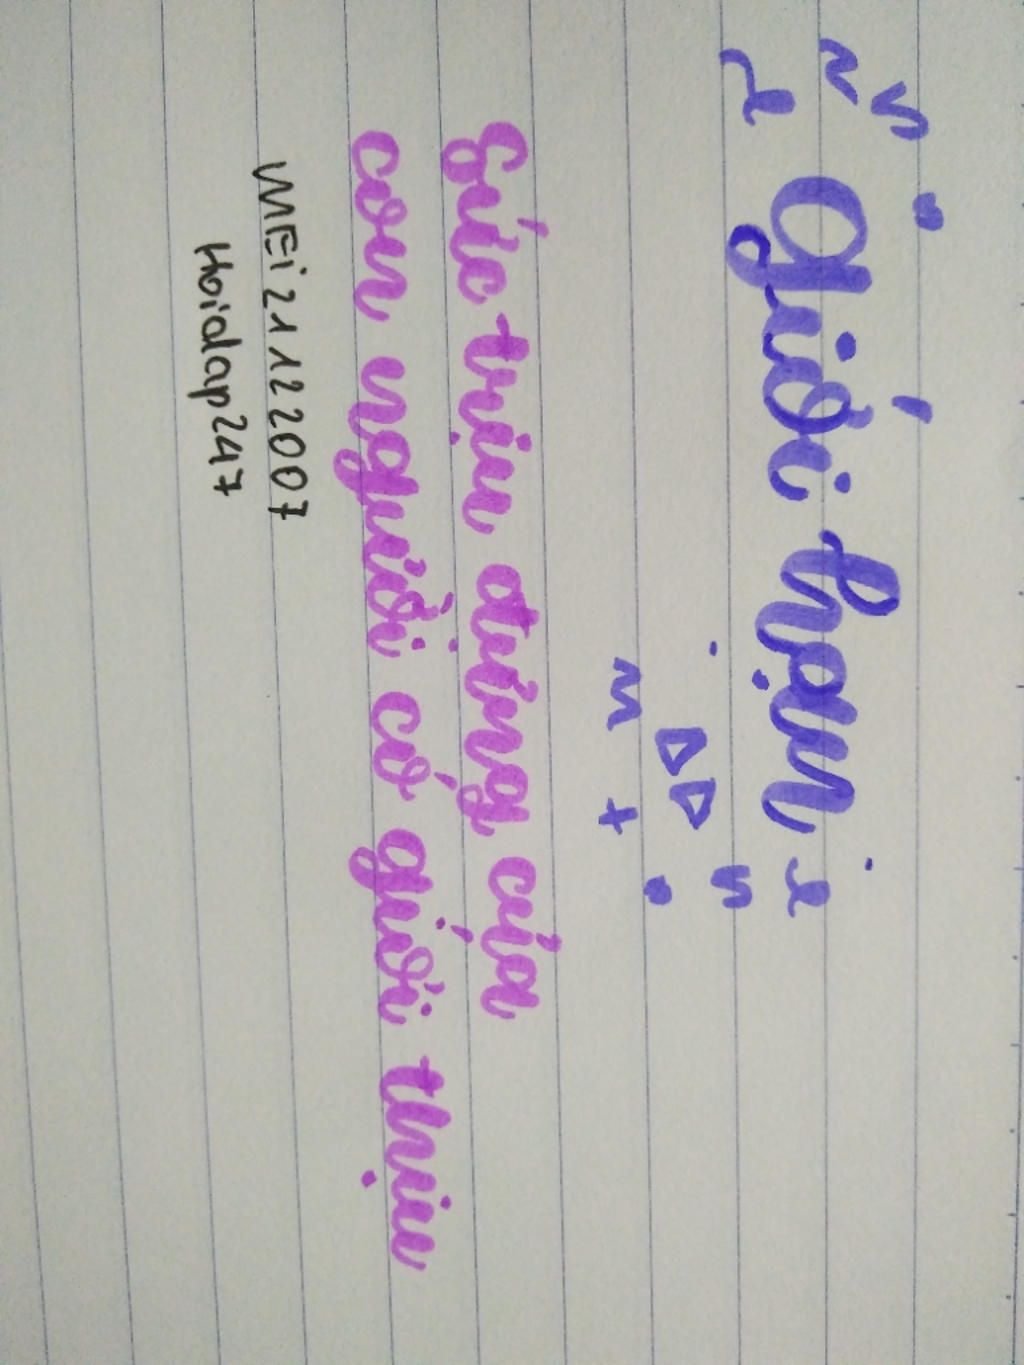 Giới hạn
Sức trịu đựng của
con người có giới
MEi21122007
Hoidap247